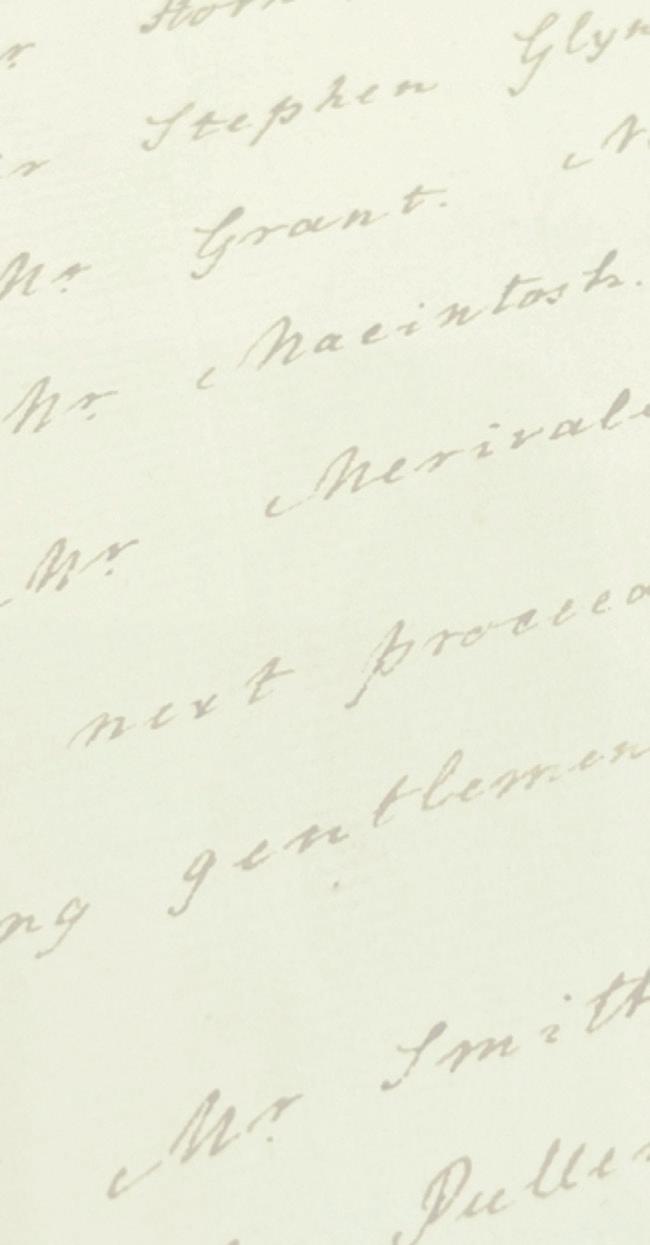 Stephen Glyn
Mr Grant.
Mr Macintosh.
Mr Merivale
next proceed
ng gentlemen
Mr Smith
Pulle